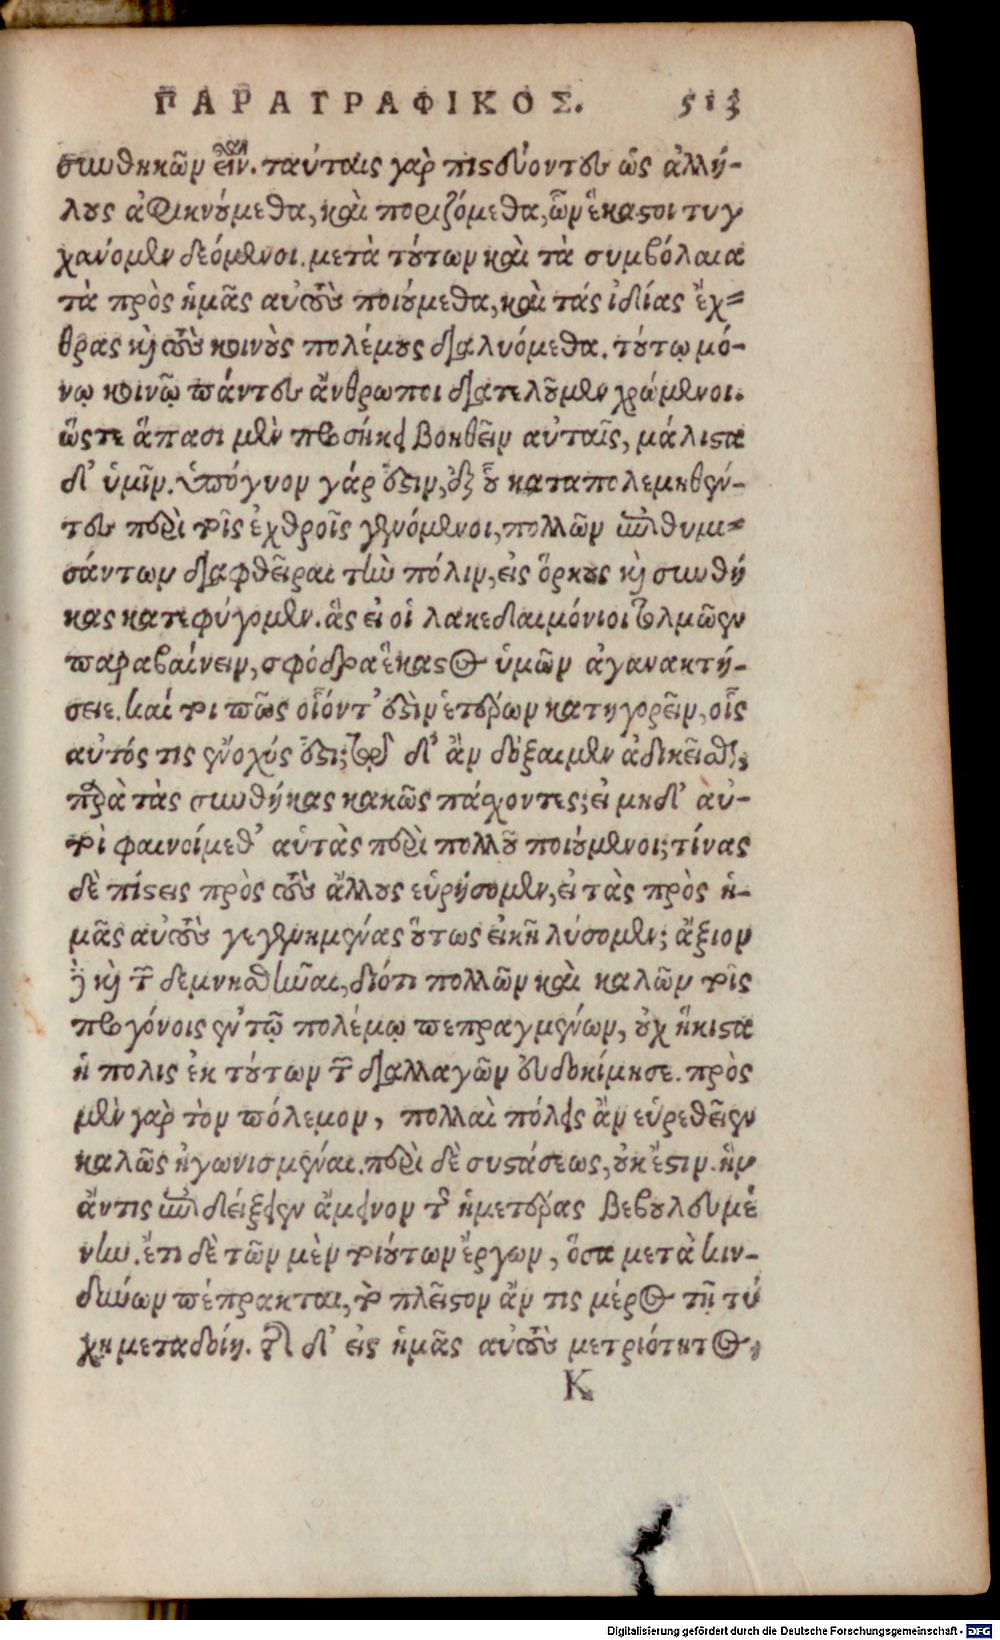 ΠΑΡΑΓΡΑΦΙΚΟΣ. 513
συνθηκῶν εἶν. ταύταις γὰρ πιστεύοντες ὡς ἀλλή-
λους ἀφικνούμεθα, καὶ ποριζόμεθα, ὧν ἕκαστοι τυγ
χάνομεν δεόμενοι. μετὰ τούτων καὶ τὰ συμβόλαια
τὰ πρὸς ἡμᾶς αὐτοὺς ποιούμεθα, καὶ τάς ἰδίας ἔχ-
θρας καὶ τοὺς κοινοὺς πολέμους διαλυόμεθα. τούτῳ μό-
νῳ κοινῷ πάντες ἄνθρωποι διατελοῦμεν χρώμενοι.
ὥςτε ἅπασι μὲν προσήκει βοηθεῖν αὐταῖς, μάλιστα
δ' ὑμῖν. ὑπόγυον γάρ ἐστιν, ἐξ οὗ καταπολεμηθέν-
τες ἐπὶ τοῖς ἐχθροῖς γενόμενοι, πολλῶν ἐπιθυμη-
σάντων διαφθεῖραι τὴν πόλιν, εἰς ὅρκους καὶ συνθή
κας κατεφύγομεν. ἃς εἰ οἱ λακεδαιμόνιοι τολμῷεν
παραβαίνειν, σφόδρα ἕκαστος ὑμῶν ἀγανακτή-
σειε. καί τοι πῶς οἷόντ' ἐστὶν ἑτέρων κατηγορεῖν, οἷς
αὐτός τις ἔνοχός ἐστι; τῷ δ' ἂν δόξαιμεν ἀδικεῖσθαι,
παρὰ τὰς συνθήκας κακῶς πάσχοντες; εἰ μηδ' αὐ-
τοὶ φαινοίμεθ' αὑτὰς περὶ πολλοῦ ποιούμενοι; τίνας
δὲ πίστεις πρὸς τοὺς ἄλλους εὑρήσομεν, εἰ τὰς πρὸς ἡ-
μᾶς αὐτοὺς γεγενημένας οὕτως εἰκῆ λύσομεν; ἄξιον
δὲ καὶ τῶνδε μνησθῆναι, διότι πολλῶν καὶ καλῶν τοῖς
προγόνοις ἐν τῷ πολέμῳ πεπραγμένων, οὐχ ἥκιστα
ἡ πολις ἐκ τούτων τῶν διαλλαγῶν εὐδοκίμησε. πρὸς
μὲν γὰρ τὸν πόλεμον, πολλαὶ πόλεις ἂν εὑρεθεῖεν
καλῶς ἠγωνισμέναι. περὶ δὲ συστάσεως, οὐκ ἔστιν. ἣν
ἄντις ἐπιδείξειεν ἄμεινον τῆς ἡμετέρας βεβουλευμέ
νην. ἔτι δὲ τῶν μὲν τοιούτων ἔργων, ὅσα μετὰ κιν-
δύνων πέπρακται, τὸ πλεῖστον ἄν τις μέρος τῇ τύ
χῃ μεταδοίη. τῆς δ' εἰς ἡμᾶς αὐτοὺς μετριότητος,
K
Digitalisierung gefördert durch die Deutsche Forschungsgemeinschaft - DFG